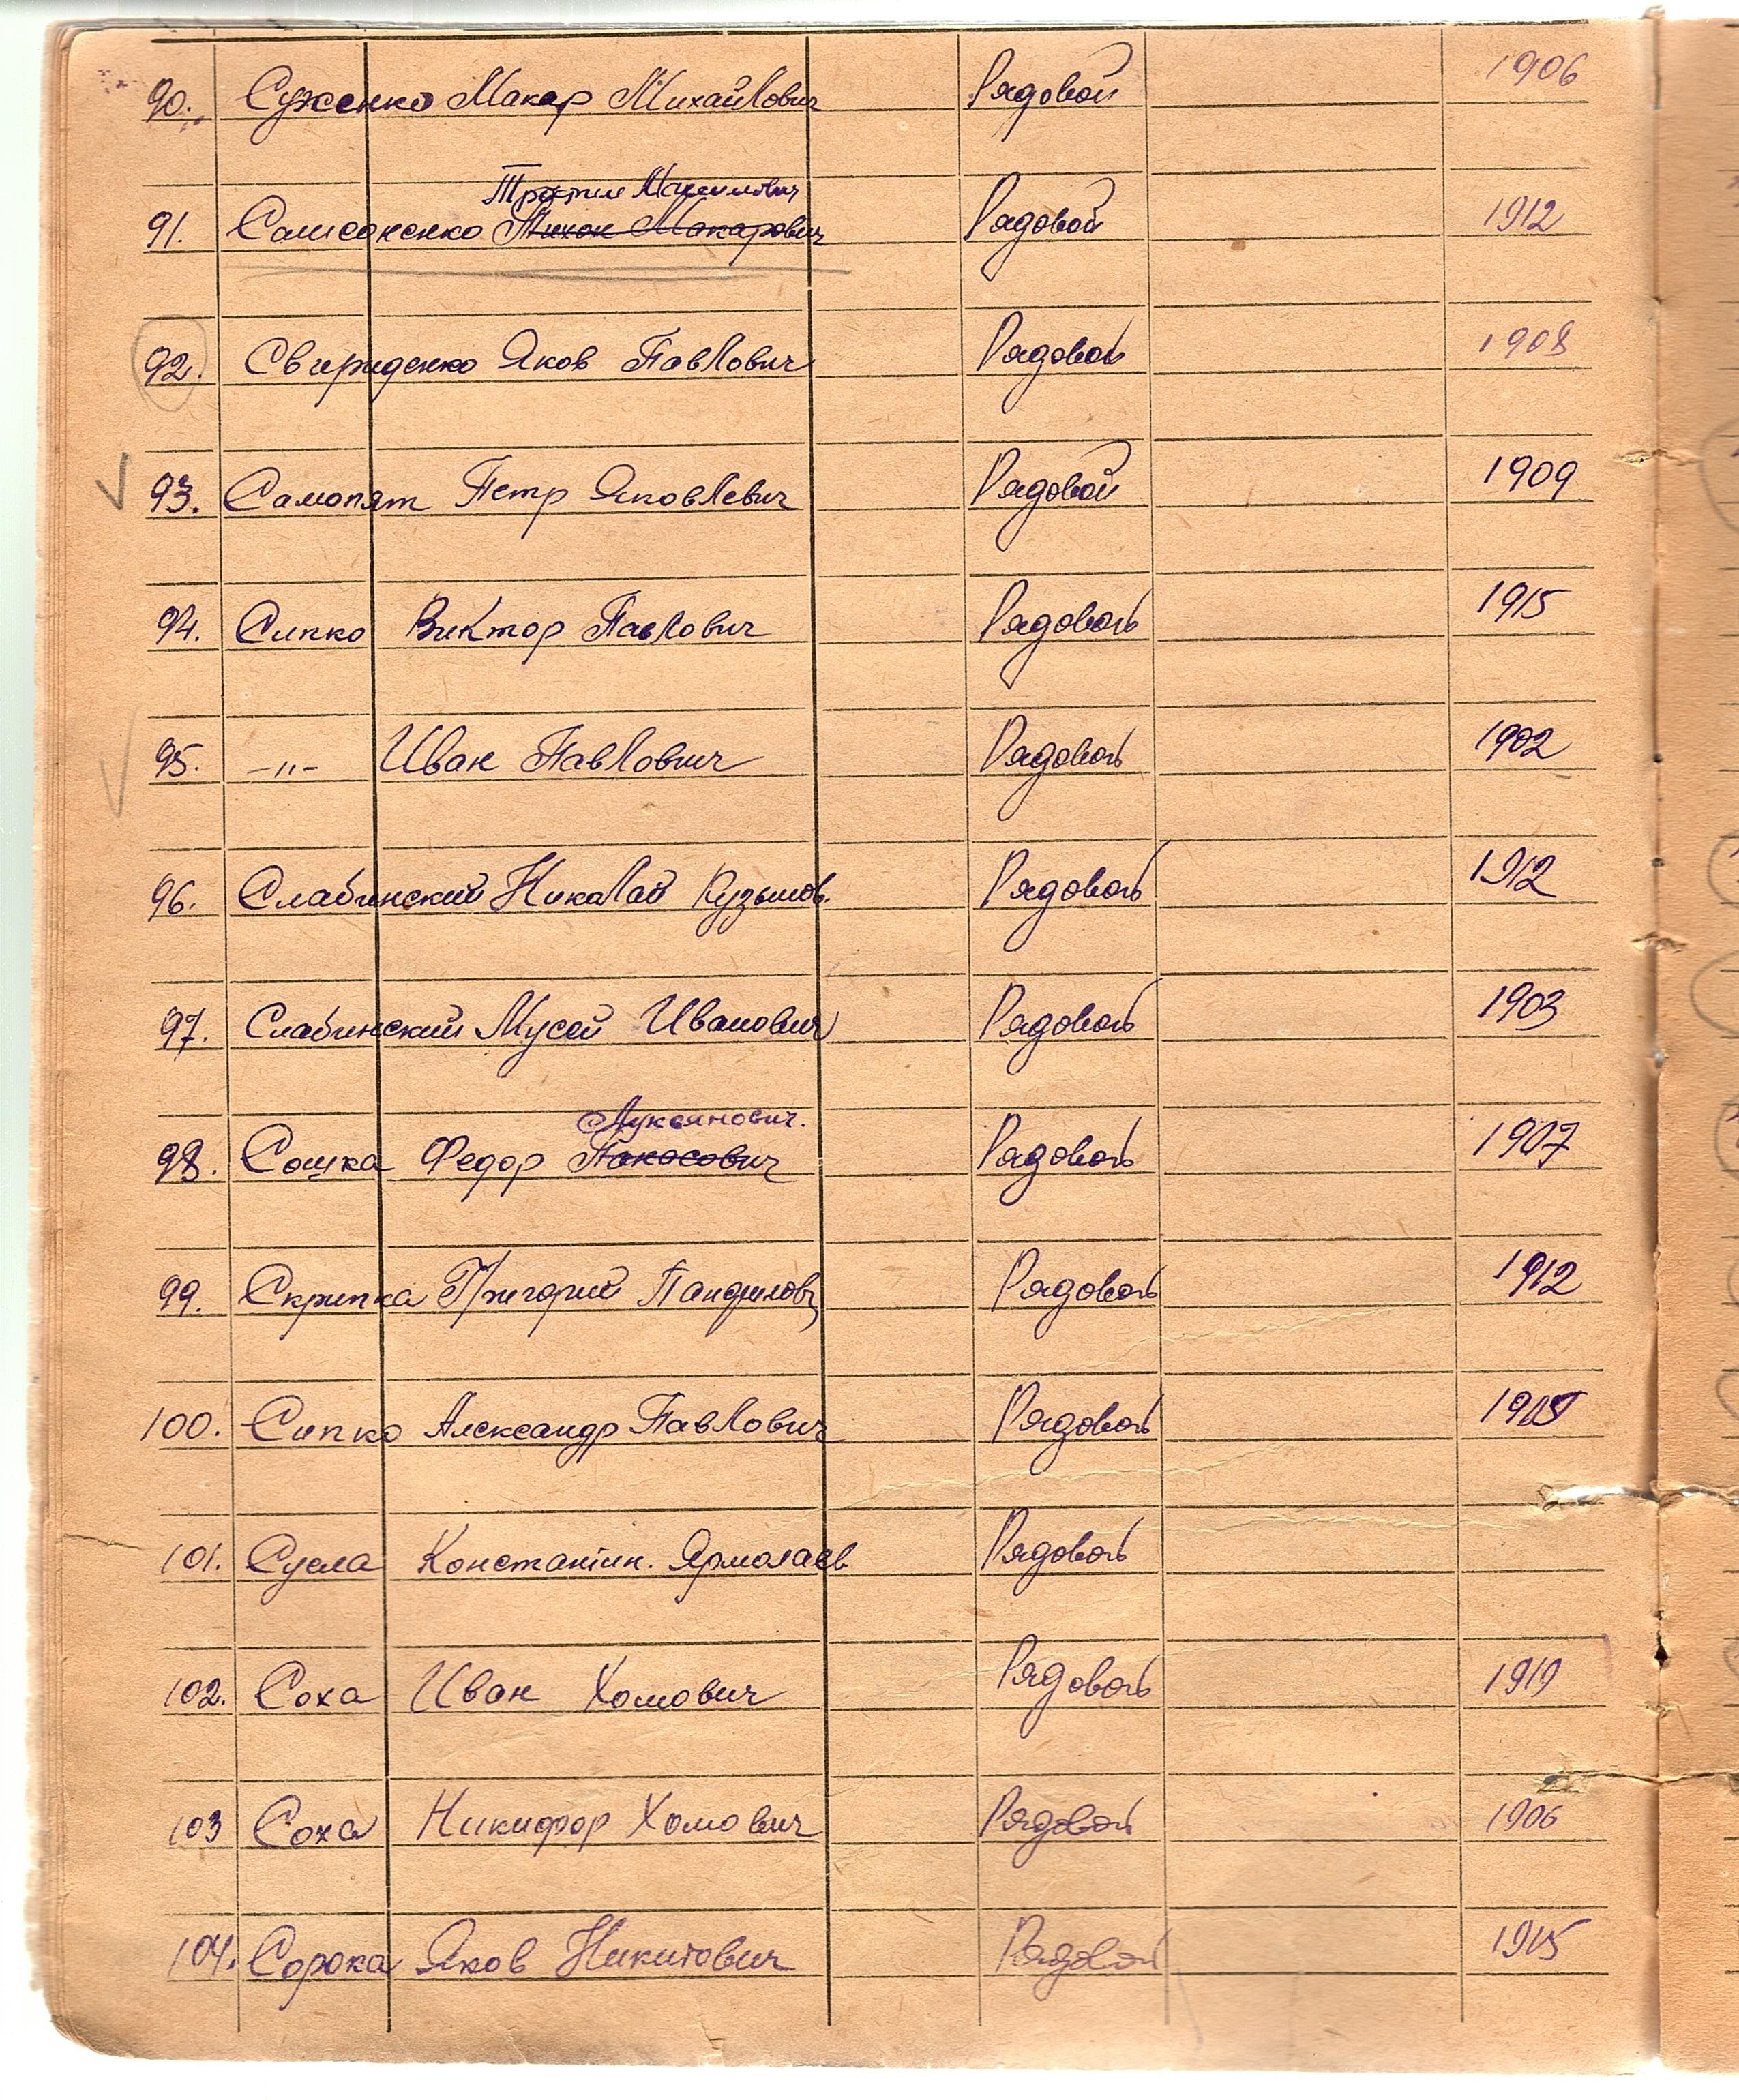 90. Суженко Макар Михайлович Рядовой 1906
Трофим Максимович
91. Самсоненко Тихон Макарович Рядовой 1912
92. Свириденко Яков Павлович Рядовой 1908
93. Самопят Петр Яковлевич Рядовой 1909
94. Сипко Виктор Павлович Рядовой 1915
95. -"- Иван Павлович Рядовой 1902
96. Слабинский Николай Кузьмов. Рядовой 1912
97. Слабинский Мусей Иванович Рядовой 1903
Лукьянович.
98. Сошка Федор Рядовой 1907
99. Скрипка Григорий Панфилов Рядовой 1912
100. Сипко Александр Павлович Рядовой
101. Сусла Константин. Ярмолаев Рядовой
102. Соха Иван Хомович Рядовой 1919
103 Соха Никифор Хомович Рядовой 1906
104. Сорока Яков Никитович Рядовой 1915